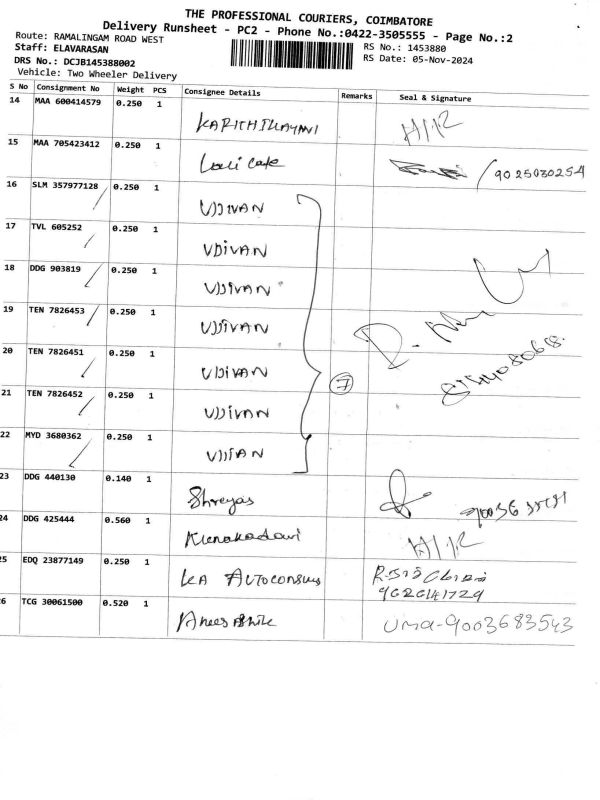 THE PROFESSIONAL COURIERS, COIMBATORE
Delivery Runsheet - PC2 - Phone No.:0422-3505555 - Page No.:2
Route: RAMALINGAM ROAD WEST
Staff: ELAVARASAN
RS No.: 1453880
DRS No.: DCJB145388002
RS Date: 05-Nov-2024
Vehicle: Two Wheeler Delivery
S No Consignment No Weight PCS Consignee Details Remarks Seal & Signature
14 MAA 600414579 0.250 1
15 MAA 705423412 0.250 1 9025030254
16 SLM 357977128 0.250 1 UDIVAN
17 TVL 605252 0.250 1 UDIVAN
18 DDG 903819 0.250 1 UDIVAN
19 TEN 7826453 0.250 1 UDIVAN
20 TEN 7826451 0.250 1 UDIVAN
7
21 TEN 7826452 0.250 1 UDIVAN
22 MYD 3680362 0.250 1
23 DDG 440130 0.140 1 Shreyas
24 DDG 425444 0.560 1
25 EDQ 23877149 0.250 1 KA
26 TCG 30061500 0.520 1 Uma-9003683543